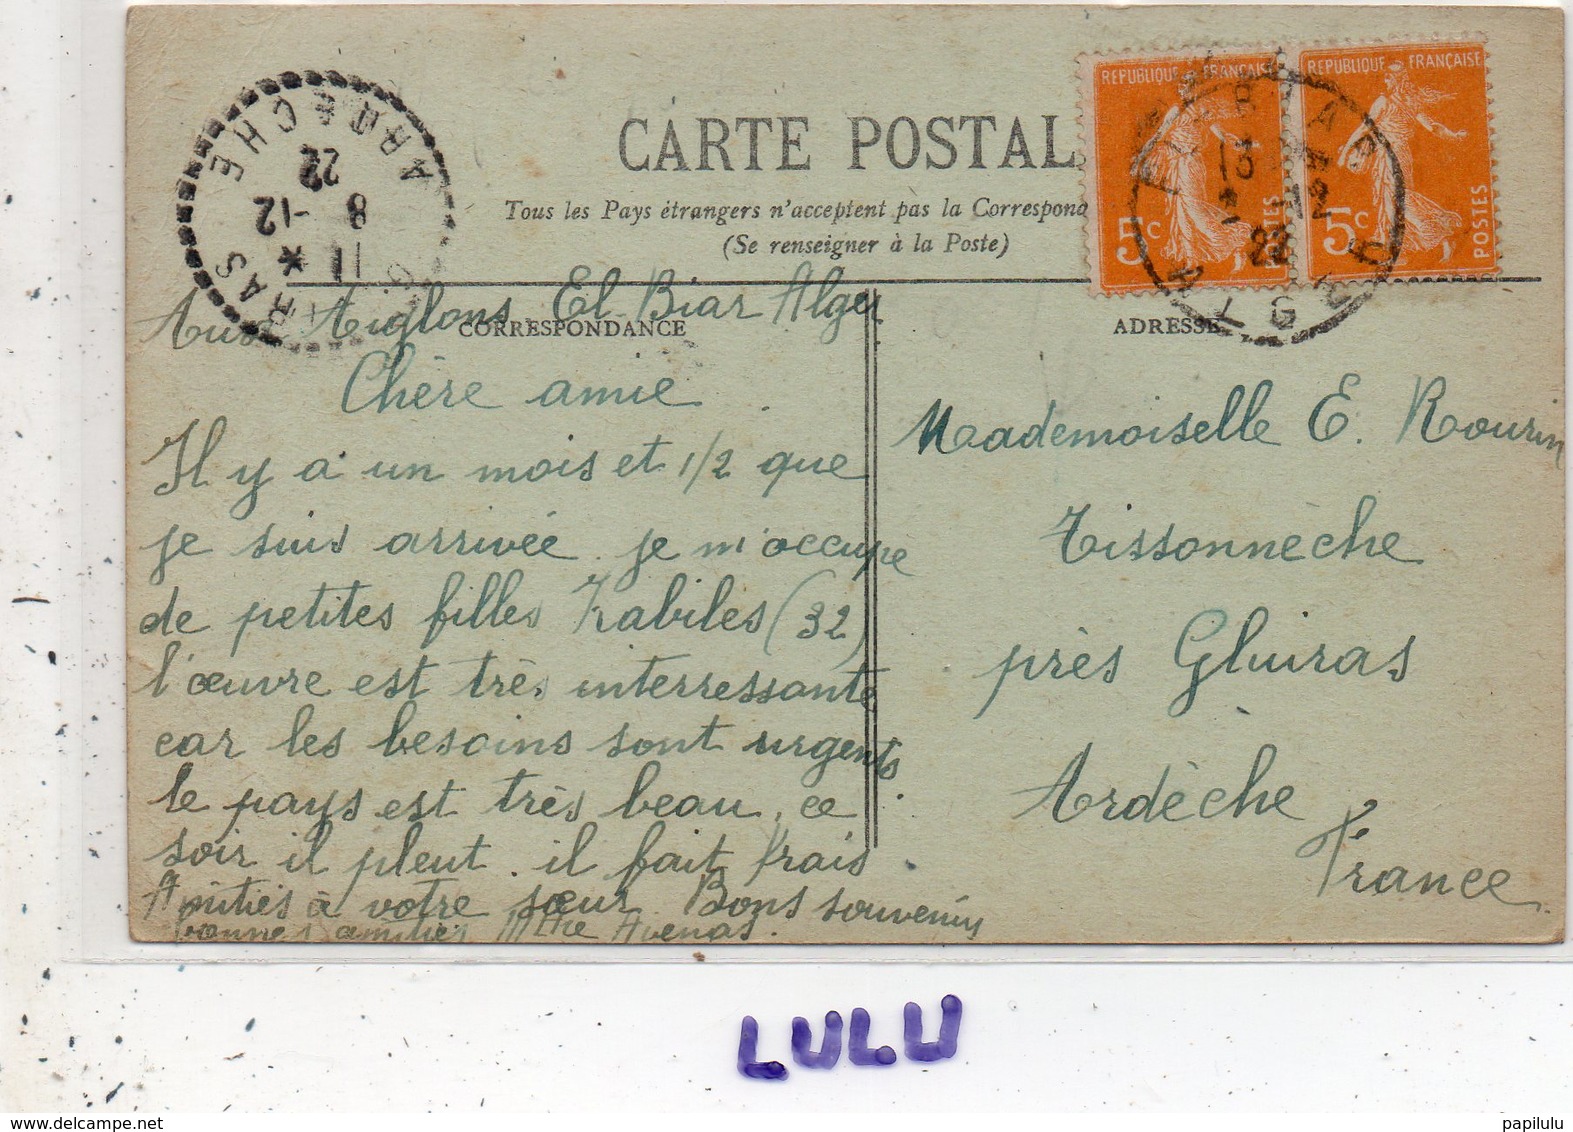 CARTE POSTALE
Tous les Pays étrangers n'acceptent pas la Correspond
(Se renseigner à la Poste)
REPUBLIQUE FRANÇAISE
5c
POSTES
REPUBLIQUE FRANÇAISE
5c
POSTES
EL-BIAR
ALGER
13
2 -12
22
GLUIRAS
ARDECHE
11 *
8 -12
22
CORRESPONDANCE
ADRESSE
Aux Aiglons El-Biar Alger
Chère amie
Il y a un mois et 1/2 que
je suis arrivée. je m'occupe
de petites filles Kabiles (32)
l'œuvre est très interressante
car les besoins sont urgents.
le pays est très beau, ce
soir il pleut. il fait frais
Amitiés à votre sœur Bons souvenirs
bonnes amitiés Mthe Avenas.
Mademoiselle E. Rourin
Tissonnèche
près Gluiras
Ardèche
France
LULU
www.delcampe.net
papilulu